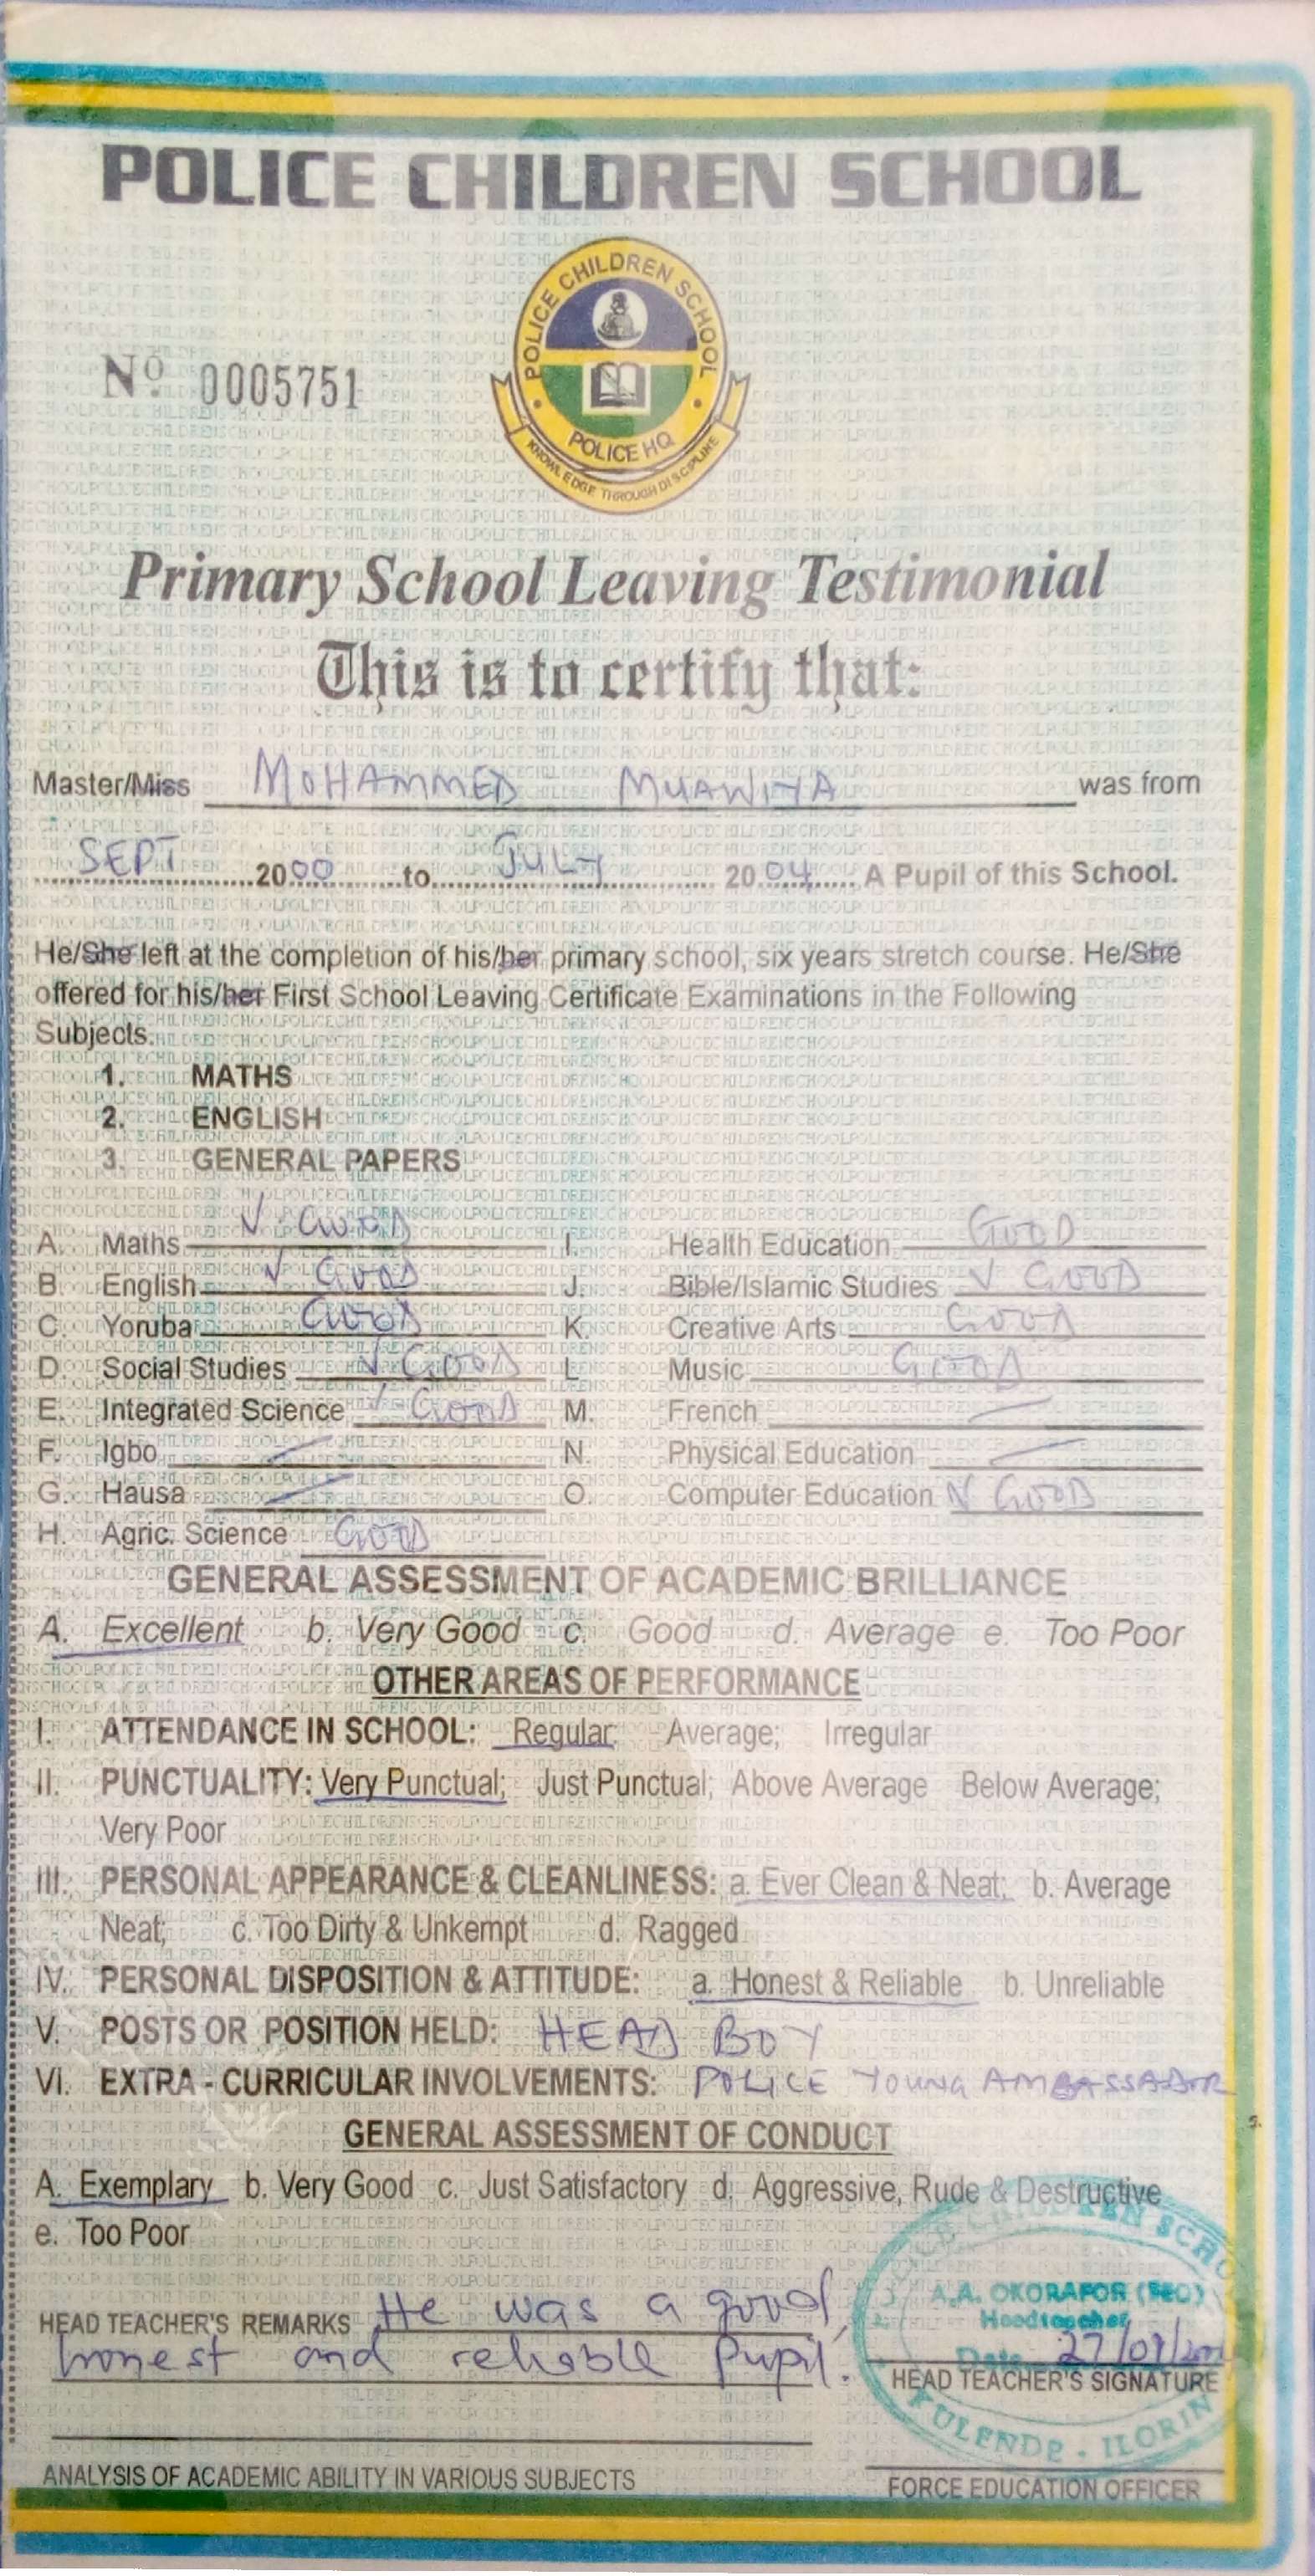 POLICE CHILDREN SCHOOL
POLICE CHILDREN SCHOOL
POLICE HQ
KNOWLEDGE THROUGH DISCIPLINE
Nº 0005751
Primary School Leaving Testimonial
This is to certify that:
Master/Miss MOHAMMED MUAWIYA was from
SEPT 2000 to JULY 2004 A Pupil of this School.
He/She left at the completion of his/her primary school, six years stretch course. He/She
offered for his/her First School Leaving Certificate Examinations in the Following
Subjects.
1. MATHS
2. ENGLISH
3. GENERAL PAPERS
A. Maths V. GOOD I. Health Education GOOD
B. English V GOOD J. Bible/Islamic Studies V GOOD
C. Yoruba GOOD K. Creative Arts GOOD
D. Social Studies V GOOD L Music GOOD
E. Integrated Science V GOOD M. French
F. Igbo N. Physical Education
G. Hausa O. Computer Education V GOOD
H. Agric. Science GOOD
GENERAL ASSESSMENT OF ACADEMIC BRILLIANCE
A. Excellent b. Very Good c. Good d. Average e. Too Poor
OTHER AREAS OF PERFORMANCE
I. ATTENDANCE IN SCHOOL: Regular; Average; Irregular
II. PUNCTUALITY: Very Punctual; Just Punctual; Above Average Below Average;
Very Poor
III. PERSONAL APPEARANCE & CLEANLINESS: a. Ever Clean & Neat; b. Average
Neat; c. Too Dirty & Unkempt d. Ragged
IV. PERSONAL DISPOSITION & ATTITUDE: a. Honest & Reliable b. Unreliable
V. POSTS OR POSITION HELD: HEAD BOY
VI. EXTRA - CURRICULAR INVOLVEMENTS: POLICE YOUNG AMBASSADOR
GENERAL ASSESSMENT OF CONDUCT
A. Exemplary b. Very Good c. Just Satisfactory d. Aggressive, Rude & Destructive
e. Too Poor
HEAD TEACHER'S REMARKS He was a good,
honest and reliable Pupil.
CHILDREN SCHO
A.A. OKORAFOR
Headteacher
Date
HEAD TEACHER'S SIGNATURE
KULENDE - ILORIN
ANALYSIS OF ACADEMIC ABILITY IN VARIOUS SUBJECTS
FORCE EDUCATION OFFICER